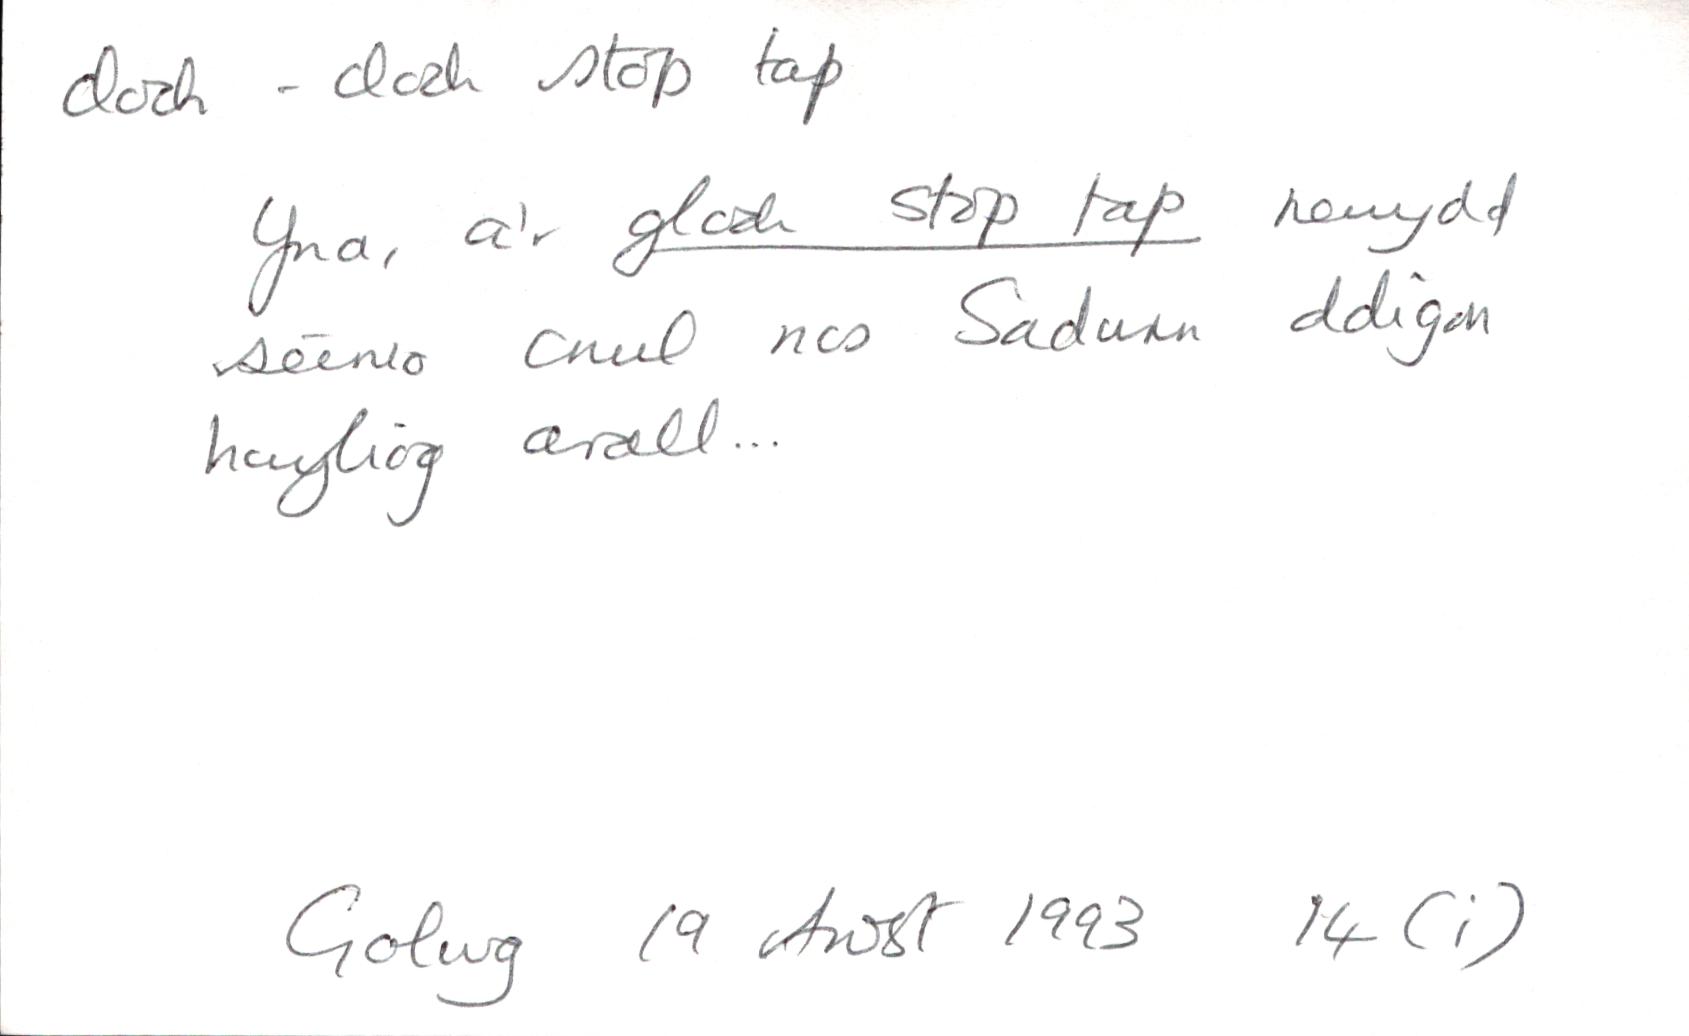 cloch - cloch stop tap
Yna, a'r gloch stop tap newydd
seinio cnul nos Sadwrn ddigon
hwyliog arall...
Golwg 19 Awst 1993 14 (i)